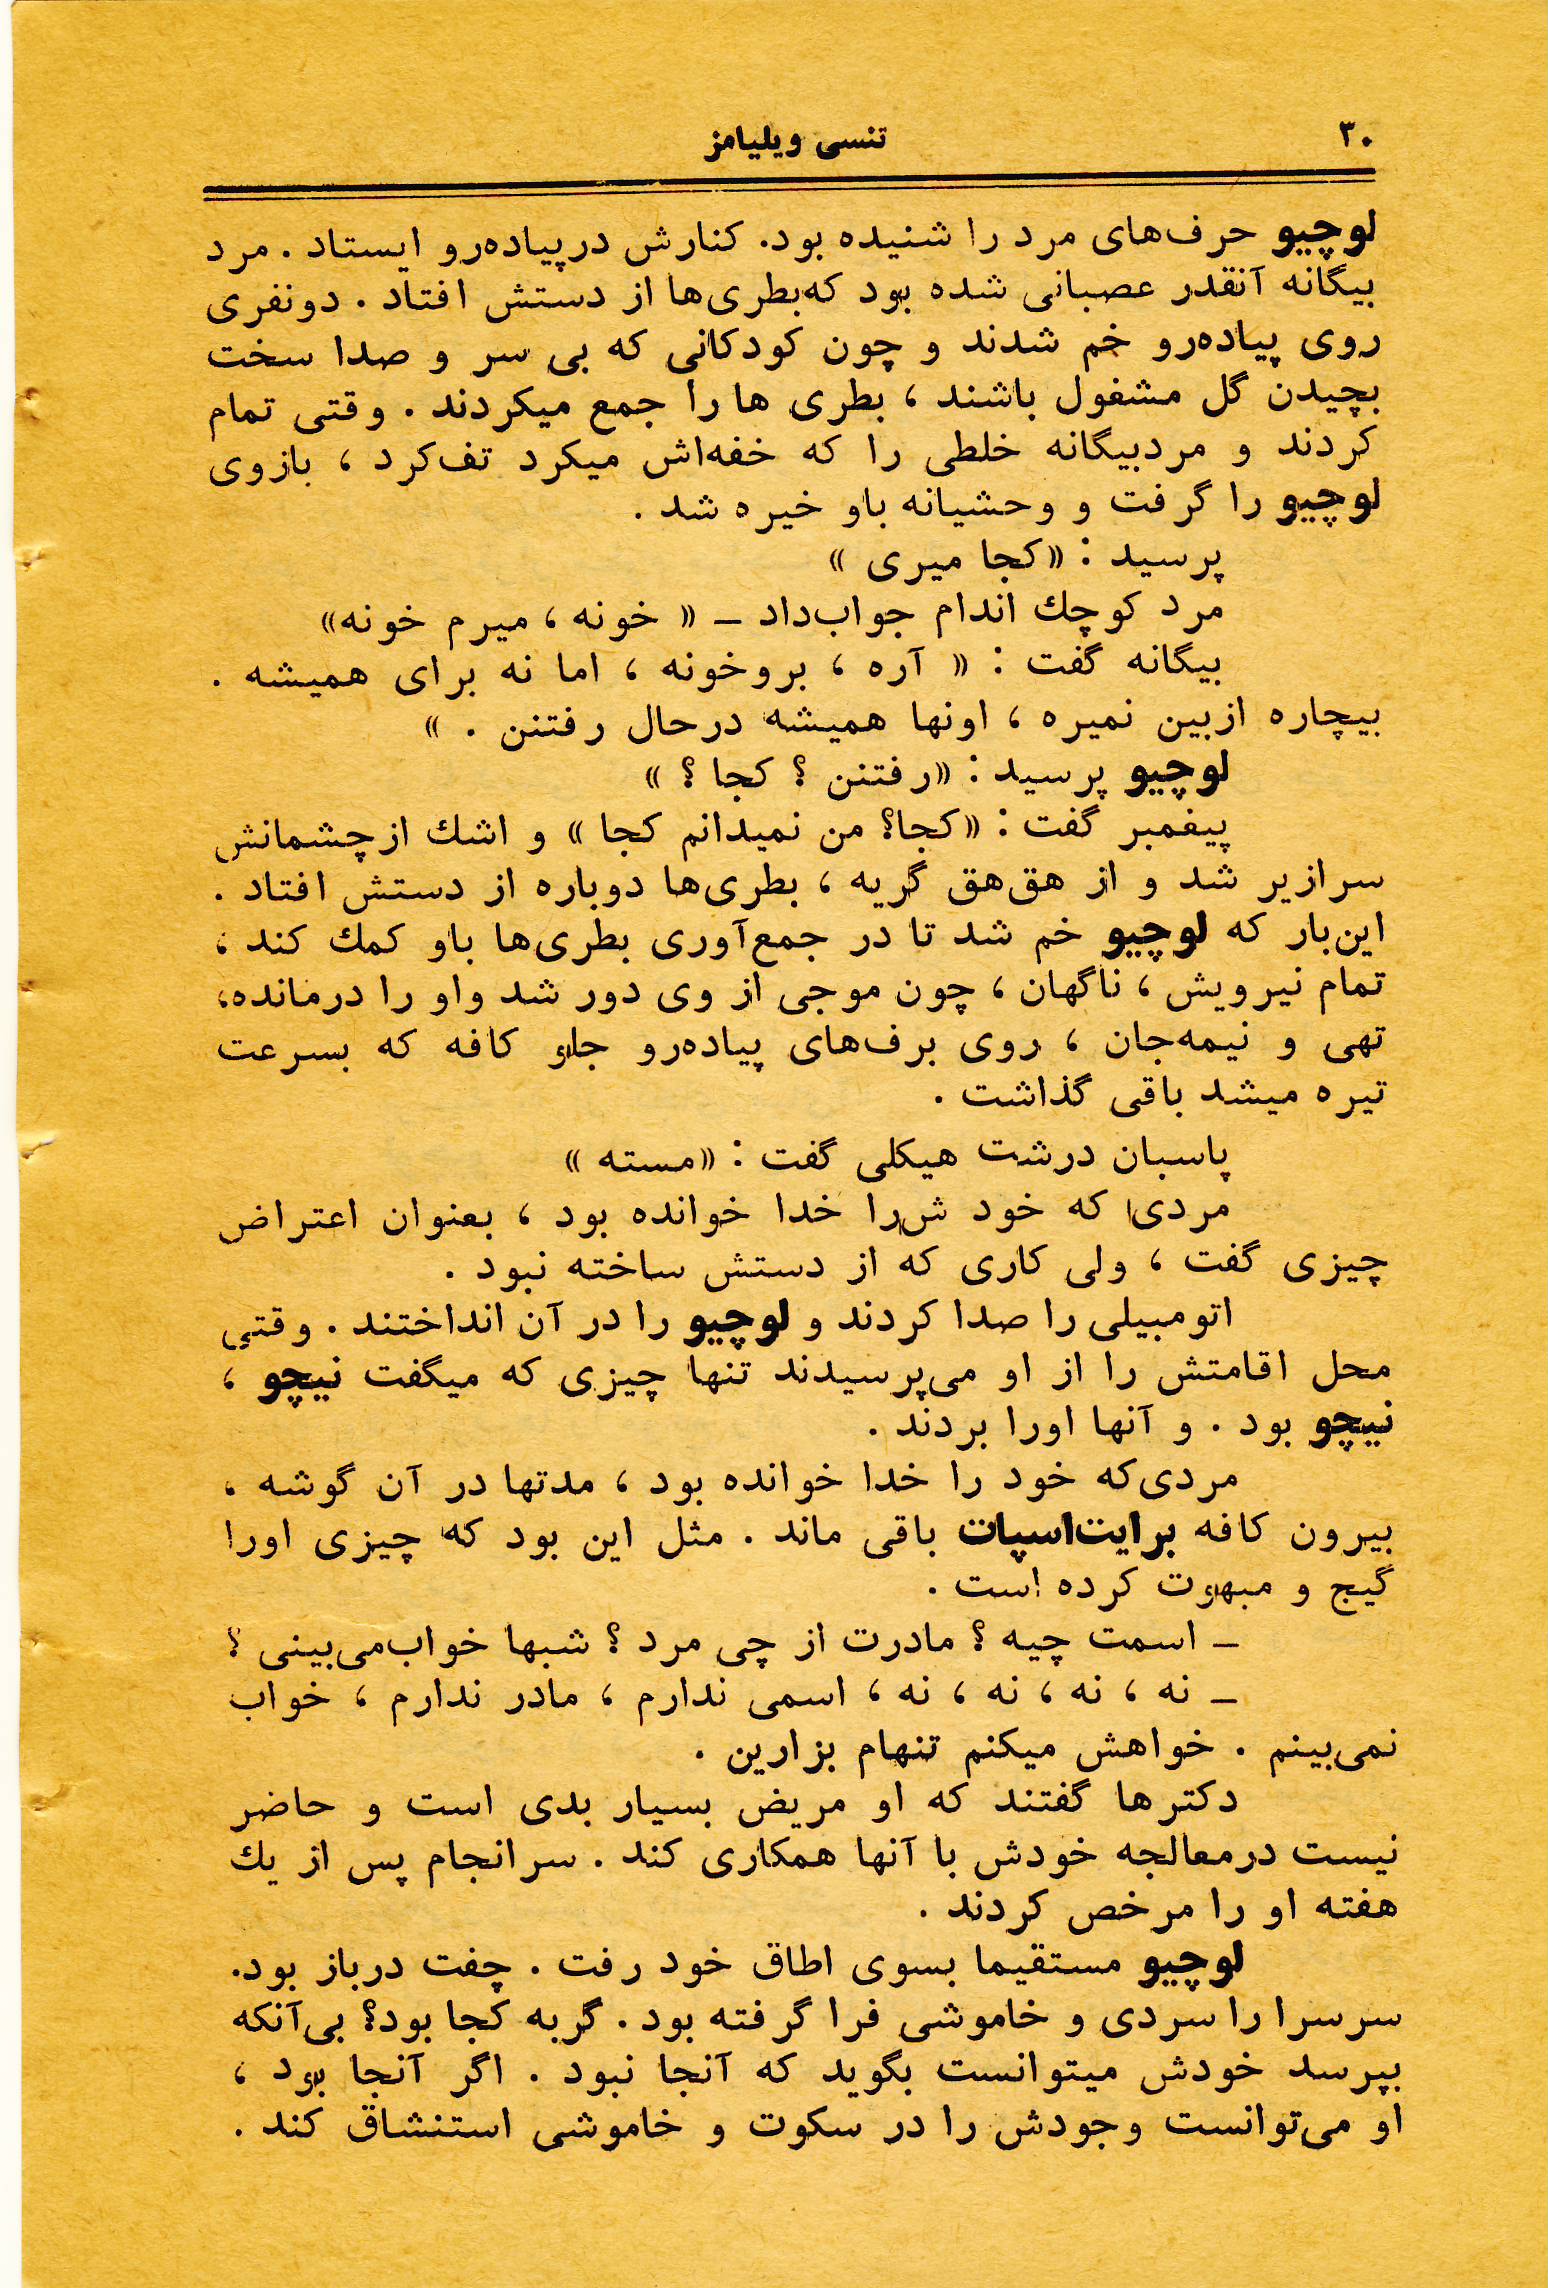 ۳۰
تنسی ویلیامز
لوچیو حرف‌های مرد را شنیده بود. کنارش درپیاده‌رو ایستاد . مرد
بیگانه آنقدر عصبانی شده بود که‌بطری‌ها از دستش افتاد . دونفری
روی پیاده‌رو خم شدند و چون کودکانی که بی سر و صدا سخت
بچیدن گل مشغول باشند ، بطری ها را جمع میکردند . وقتی تمام
کردند و مردبیگانه خلطی را که خفه‌اش میکرد تف‌کرد ، بازوی
لوچیو را گرفت و وحشیانه باو خیره شد .
پرسید : «کجا میری »
مرد کوچك اندام جواب‌داد ـ « خونه ، میرم خونه»
بیگانه گفت : « آره ، بروخونه ، اما نه برای همیشه .
بیچاره ازبین نمیره ، اونها همیشه درحال رفتنن . »
لوچیو پرسید : «رفتنن ؟ کجا ؟ »
پیغمبر گفت : «کجا؟ من نمیدانم کجا » و اشك ازچشمانش
سرازیر شد و از هق‌هق گریه ، بطری‌ها دوباره از دستش افتاد .
این‌بار که لوچیو خم شد تا در جمع‌آوری بطری‌ها باو کمك کند ،
تمام نیرویش ، ناگهان ، چون موجی از وی دور شد واو را درمانده،
تهی و نیمه‌جان ، روی برف‌های پیاده‌رو جلو کافه که بسرعت
تیره میشد باقی گذاشت .
پاسبان درشت هیکلی گفت : «مسته »
مردی که خود ش‌را خدا خوانده بود ، بعنوان اعتراض
چیزی گفت ، ولی کاری که از دستش ساخته نبود .
اتومبیلی را صدا کردند و لوچیو را در آن انداختند . وقتی
محل اقامتش را از او می‌پرسیدند تنها چیزی که میگفت نیچو ،
نیچو بود . و آنها اورا بردند .
مردی‌که خود را خدا خوانده بود ، مدتها در آن گوشه ،
بیرون کافه برایت‌اسپات باقی ماند . مثل این بود که چیزی اورا
گیج و مبهوت کرده است .
ـ اسمت چیه ؟ مادرت از چی مرد ؟ شبها خواب‌می‌بینی ؟
ـ نه ، نه ، نه ، نه ، اسمی ندارم ، مادر ندارم ، خواب
نمی‌بینم . خواهش میکنم تنهام بزارین .
دکترها گفتند که او مریض بسیار بدی است و حاضر
نیست درمعالجه خودش با آنها همکاری کند . سرانجام پس از یك
هفته او را مرخص کردند .
لوچیو مستقیما بسوی اطاق خود رفت . چفت درباز بود.
سرسرا را سردی و خاموشی فرا گرفته بود . گربه کجا بود؟ بی‌آنکه
بپرسد خودش میتوانست بگوید که آنجا نبود . اگر آنجا بود ،
او می‌توانست وجودش را در سکوت و خاموشی استنشاق کند .